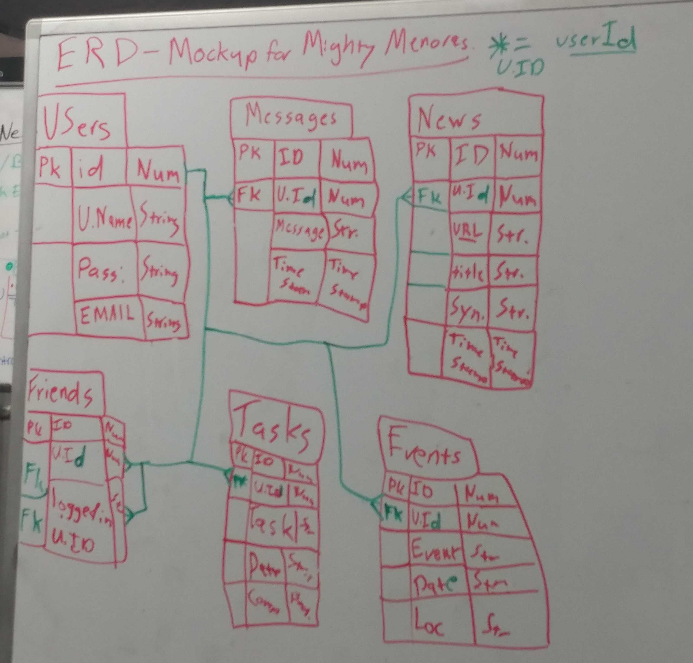 ERD - Mockup for Mighty Menores. *= userId
U.ID
Users
PK id Num
U.Name String
Pass: String
EMAIL String
Messages
PK ID Num
FK U.Id Num
Message Str.
Time Stamp Time Stamp
News
PK ID Num
FK U.Id Num
URL Str.
title Str.
Syn. Str.
Time Stamp Time Stamp
Friends
PK ID Num
FK U.Id Num
FK loggedin
U.ID
Tasks
PK ID Num
FK U.Id Num
Task
Date
Events
PK ID Num
FK U.Id Num
Event Str
Date Str
Loc Str
Ne